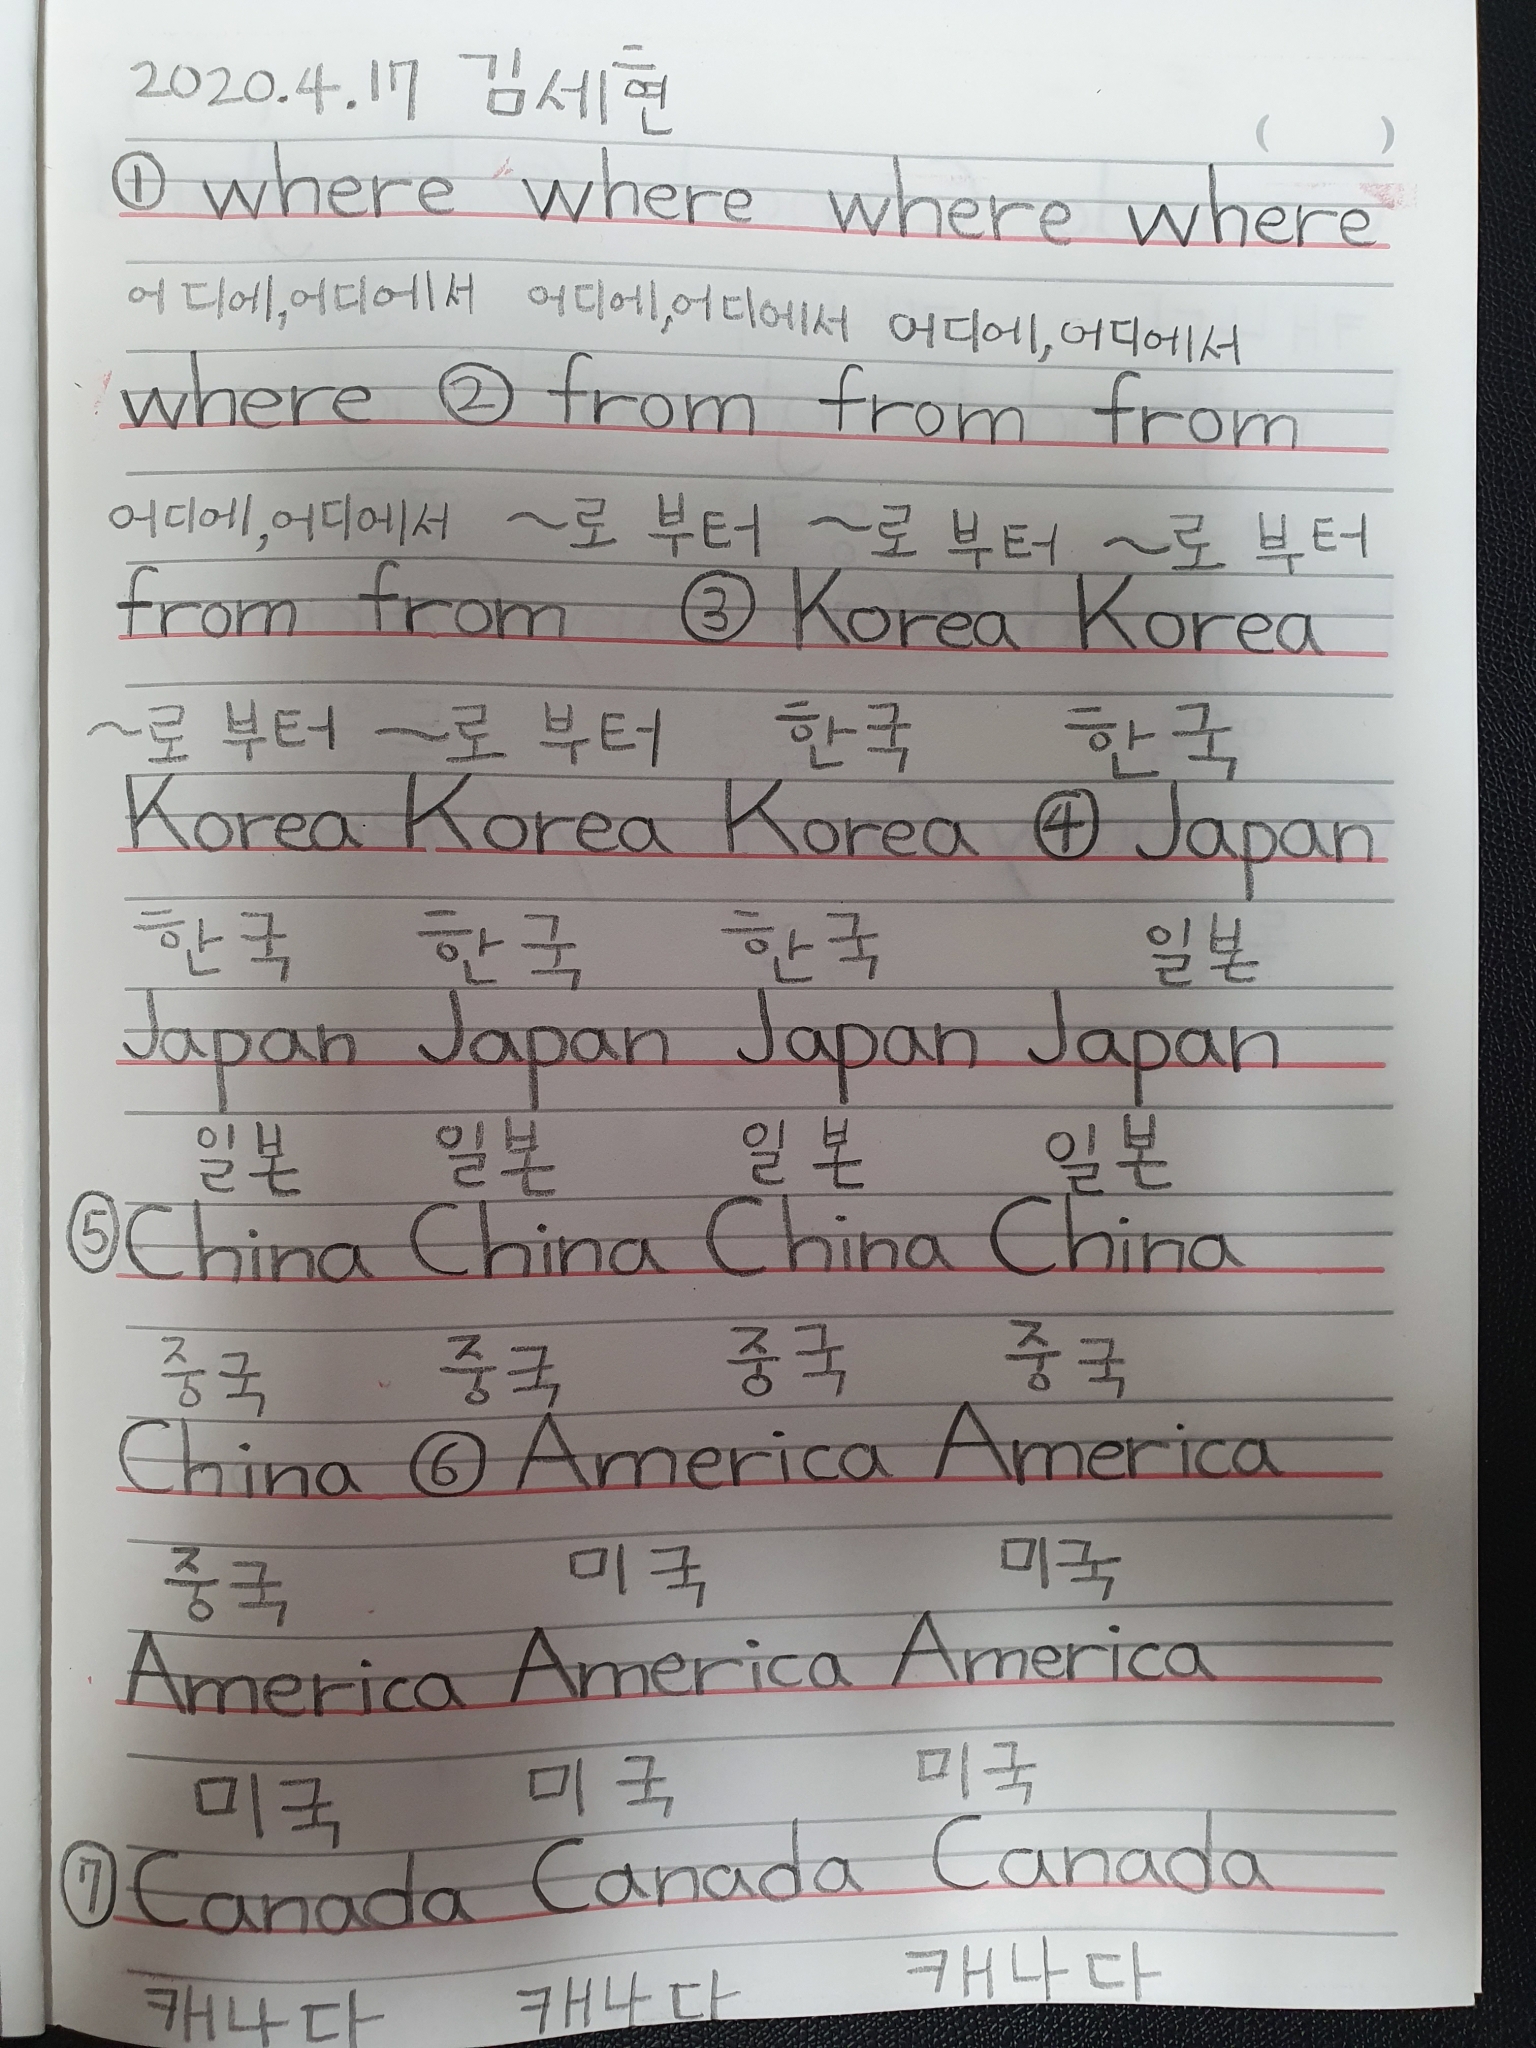 2020.4.17 김세현
( )
① where where where where
어디에,어디에서 어디에,어디에서 어디에,어디에서
where ② from from from
어디에,어디에서 ~로 부터 ~로 부터 ~로 부터
from from ③ Korea Korea
~로 부터 ~로 부터 한국 한국
Korea Korea Korea ④ Japan
한국 한국 한국 일본
Japan Japan Japan Japan
일본 일본 일본 일본
⑤ China China China China
중국 중국 중국 중국
China ⑥ America America
중국 미국 미국
America America America
미국 미국 미국
⑦ Canada Canada Canada
캐나다 캐나다 캐나다